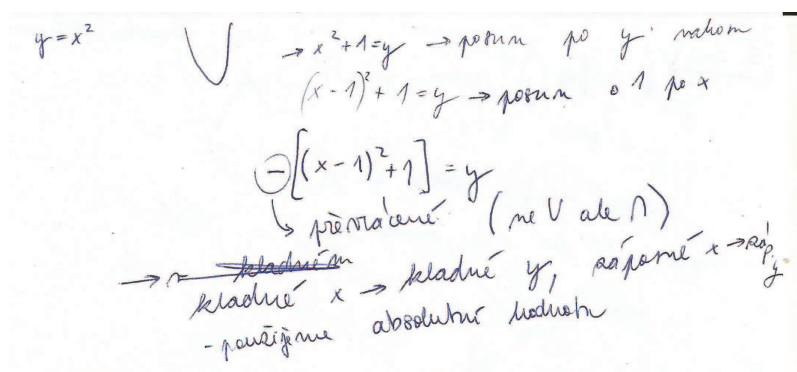 y = x²
→ x² + 1 = y → posun po y
(x - 1)² + 1 = y → posun o 1 po x
- [(x - 1)² + 1] = y
↳ převrácené (ne V ale Λ)
→
kladné x → kladné y, záporné x → záp. y
- použijeme absolutní hodnotu